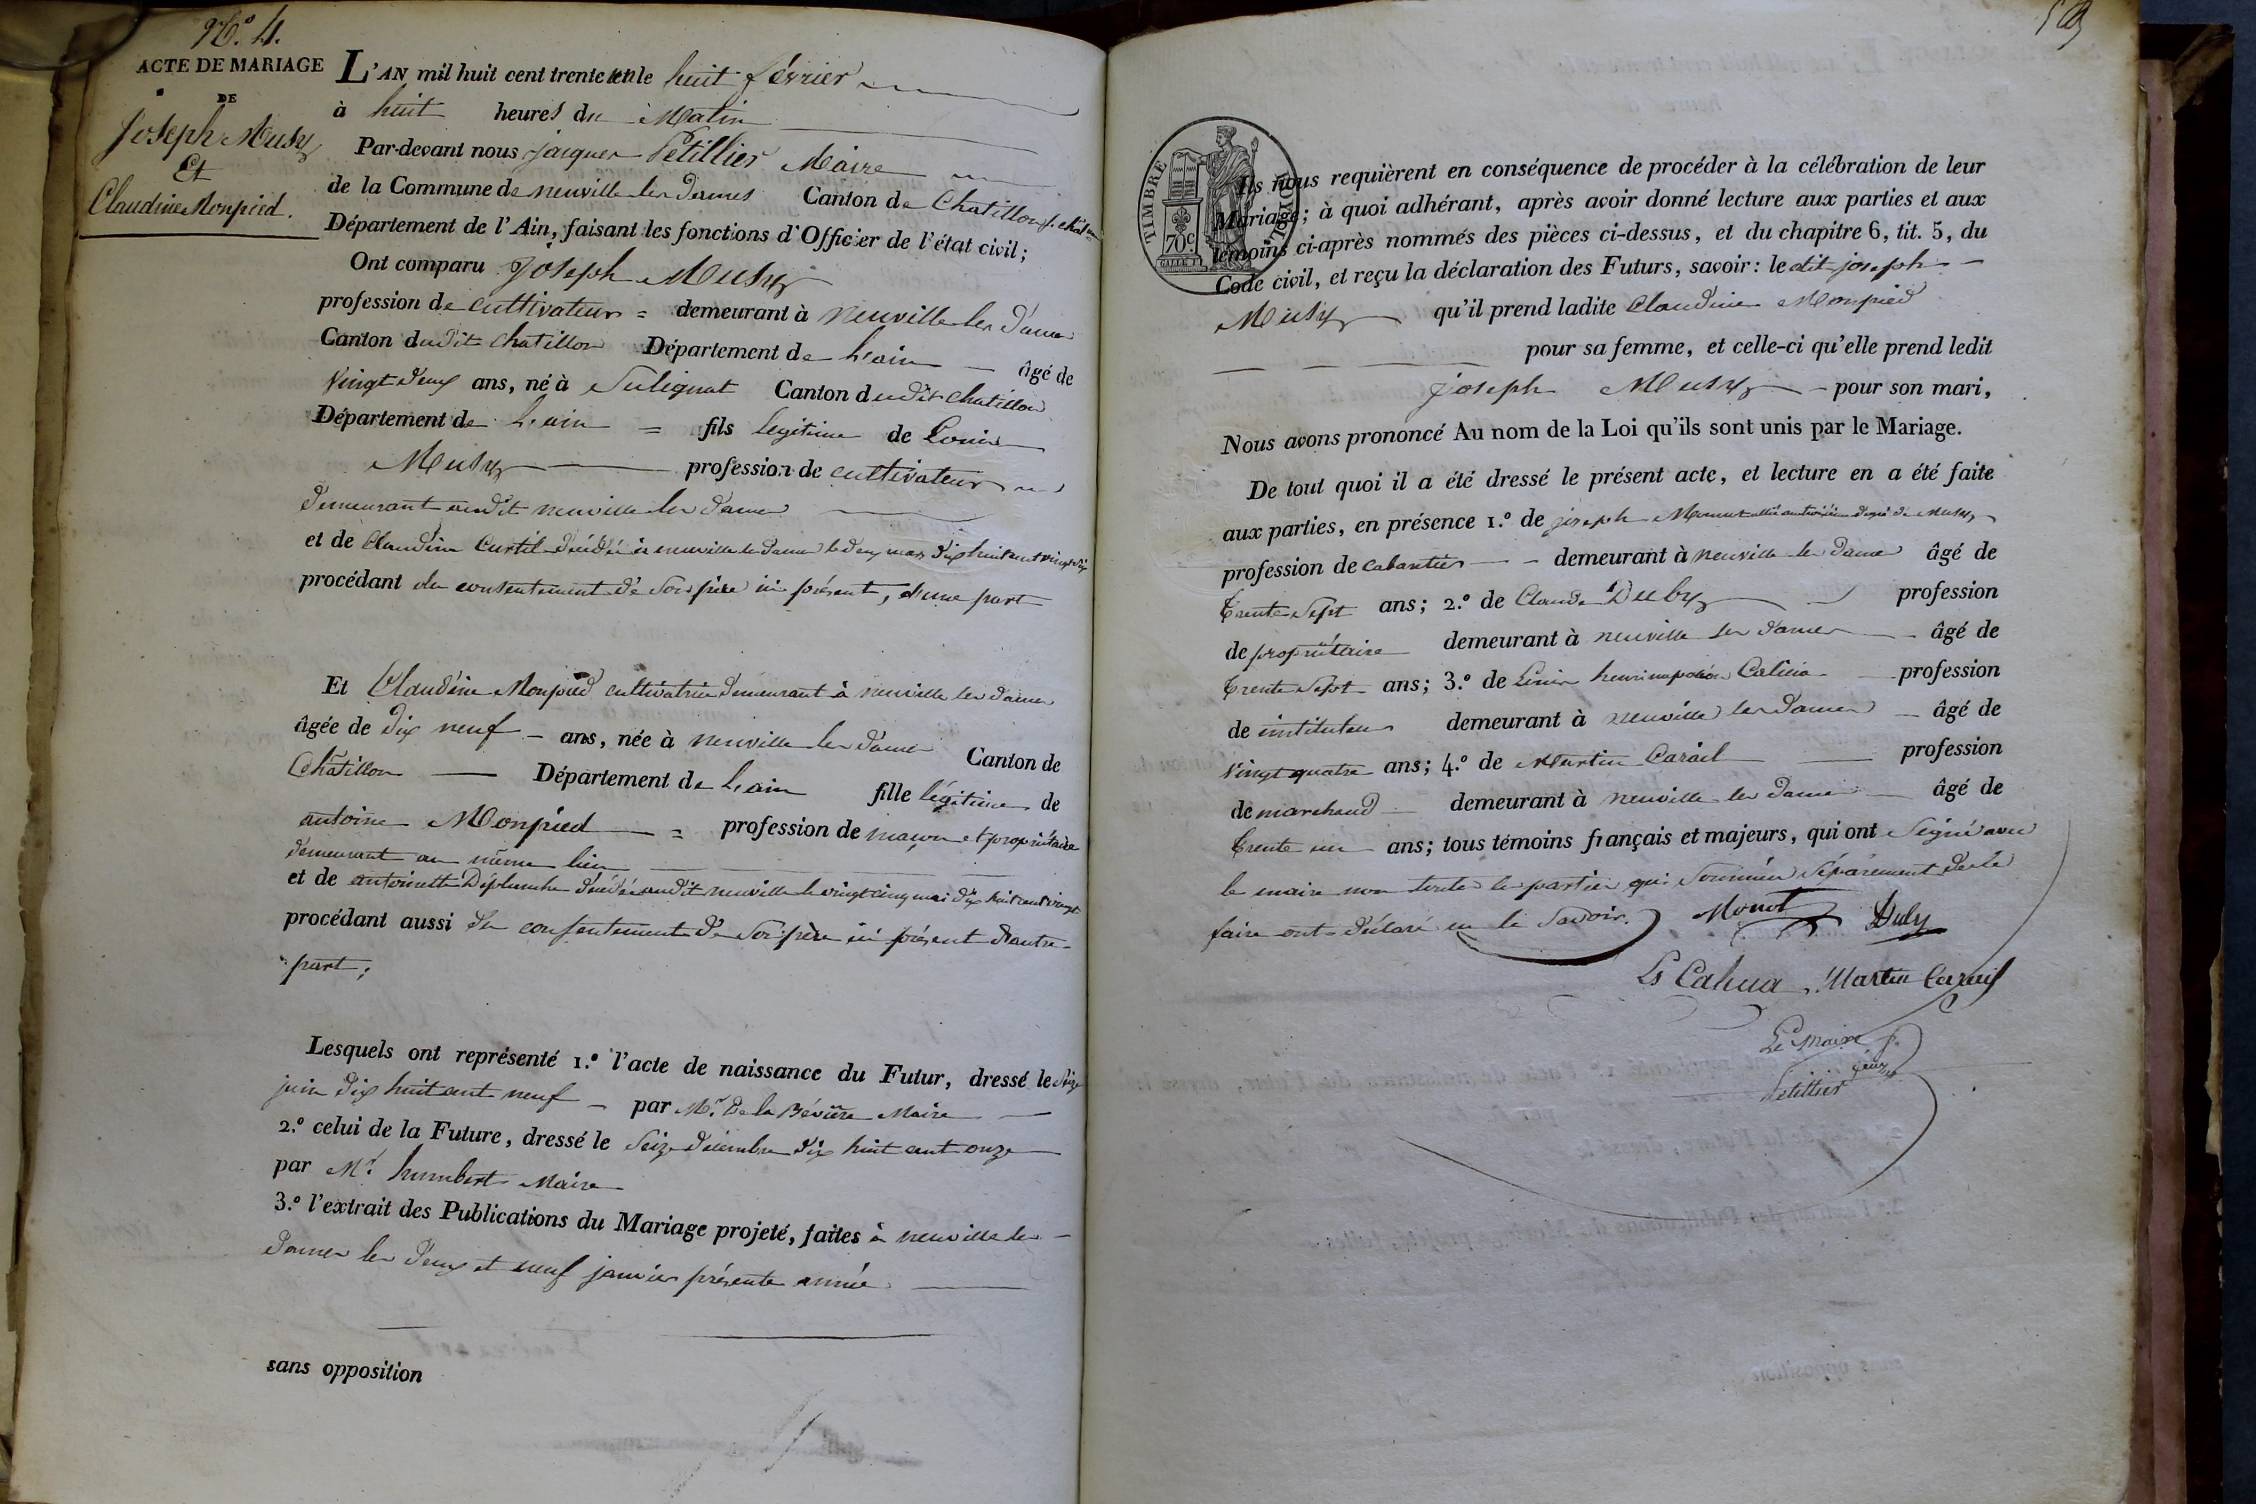 N.º 4.
ACTE DE MARIAGE
DE
Joseph Musy
Et
Claudine Monpied.
L'AN mil huit cent trente le huit février
à huit heures du Matin
Par-devant nous jacques Petillier Maire
de la Commune de neuville les dames Canton de Chatillon
Département de l'Ain, faisant les fonctions d'Officier de l'état civil;
Ont comparu Joseph Musy
profession de cultivateur = demeurant à neuville les dames
Canton dudit chatillon Département de l'ain âgé de
vingt deux ans, né à Sulignat Canton dudit chatillon
Département de l'ain = fils legitime de Louis
Musy profession de cultivateur
demeurant audit neuville les dames
et de Claudine Curtil décédée à neuville les dames le deux mars dix huit cent vingt six
procédant du consentement de son père ici présent, d'une part
Et Claudine Monpied cultivatrice demeurant à neuville les dames
âgée de dix neuf ans, née à neuville les dames Canton de
Châtillon Département de l'ain fille légitime de
antoine Monpied = profession de maçon et propriétaire
demeurant au même lieu
et de antoinette Déplanche décédée audit neuville le vingt cinq mai dix huit cent vingt
procédant aussi du consentement de son père ici présent d'autre
part;
Lesquels ont représenté 1.º l'acte de naissance du Futur, dressé le seize
juin dix huit cent neuf par Mr. De la Bévière Maire
2.º celui de la Future, dressé le seize décembre dix huit cent onze
par Mr. humbert Maire
3.º l'extrait des Publications du Mariage projeté, faites à neuville les
dames les deux et neuf janvier présente année
sans opposition
TIMBRE ROYAL
70 c
Ils nous requièrent en conséquence de procéder à la célébration de leur
Mariage; à quoi adhérant, après avoir donné lecture aux parties et aux
témoins ci-après nommés des pièces ci-dessus, et du chapitre 6, tit. 5, du
Code civil, et reçu la déclaration des Futurs, savoir: le dit joseph
Musy qu'il prend ladite Claudine Monpied
pour sa femme, et celle-ci qu'elle prend ledit
joseph Musy pour son mari,
Nous avons prononcé Au nom de la Loi qu'ils sont unis par le Mariage.
De tout quoi il a été dressé le présent acte, et lecture en a été faite
aux parties, en présence 1.º de joseph Monnet allié au troisième degré de Musy
profession de cabaretier demeurant à neuville les dames âgé de
trente sept ans; 2.º de Claude Duby profession
de propriétaire demeurant à neuville les dames âgé de
trente sept ans; 3.º de Louis henri napoléon profession
de instituteur demeurant à neuville les dames âgé de
vingt quatre ans; 4.º de Martin profession
de marchand demeurant à neuville les dames âgé de
trente un ans; tous témoins français et majeurs, qui ont Signé avec
le maire non toutes les parties qui sommées séparément de le
faire ont déclaré ne le Savoir. Monet Duby
Ls Cahua Martin
Le Maire
Petillier